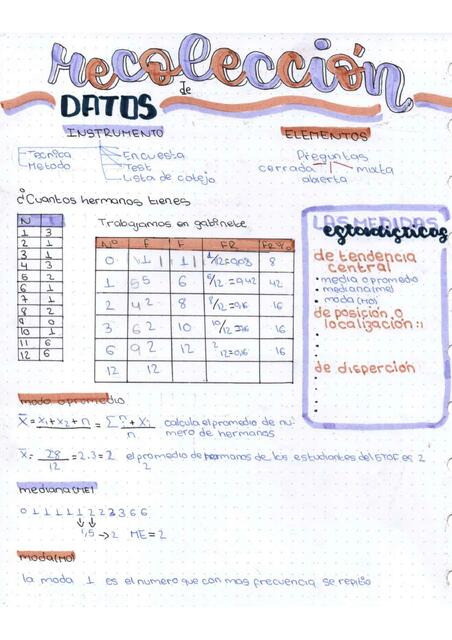 recolección
de
DATOS
INSTRUMENTO
Tecnica
Metodo
Encuesta
Test
Lista de cotejo
ELEMENTOS
Preguntas
cerrada mixta
abierta
¿Cuantos hermanos tienes
N
1 3
2 1
3 1
4 3
5 2
6 1
7 1
8 2
9 0
10 1
11 6
12 6
Trabajamos en gabinete
Nº F F FR FR%
0 1 1 1/12=0,08 8
1 5 6 6/12=0,42 42
2 4 2 8 8/12=0,16 16
3 6 2 10 10/12=0,16 16
6 9 2 12 2/12=0,16 16
12 12
LAS MEDIDAS
estadisticas
de tendencia
central
• media o promedio
• mediana(me)
• moda (MO)
de posición o
localización:
de disperción
moda o promedio
X̄ = x₁+x₂+n = Σ n + x₁ / n calcula el promedio de nu-
mero de hermanos
X̄ = 28/12 = 2.3 = 2 el promedio de hermanos de los estudiantes del 5TOF es 2
2
mediana(ME)
0 1 1 1 1 1 2 2 3 3 6 6
1,5 → 2 ME = 2
moda(MO)
la moda 1 es el numero que con mas frecuencia se repitio